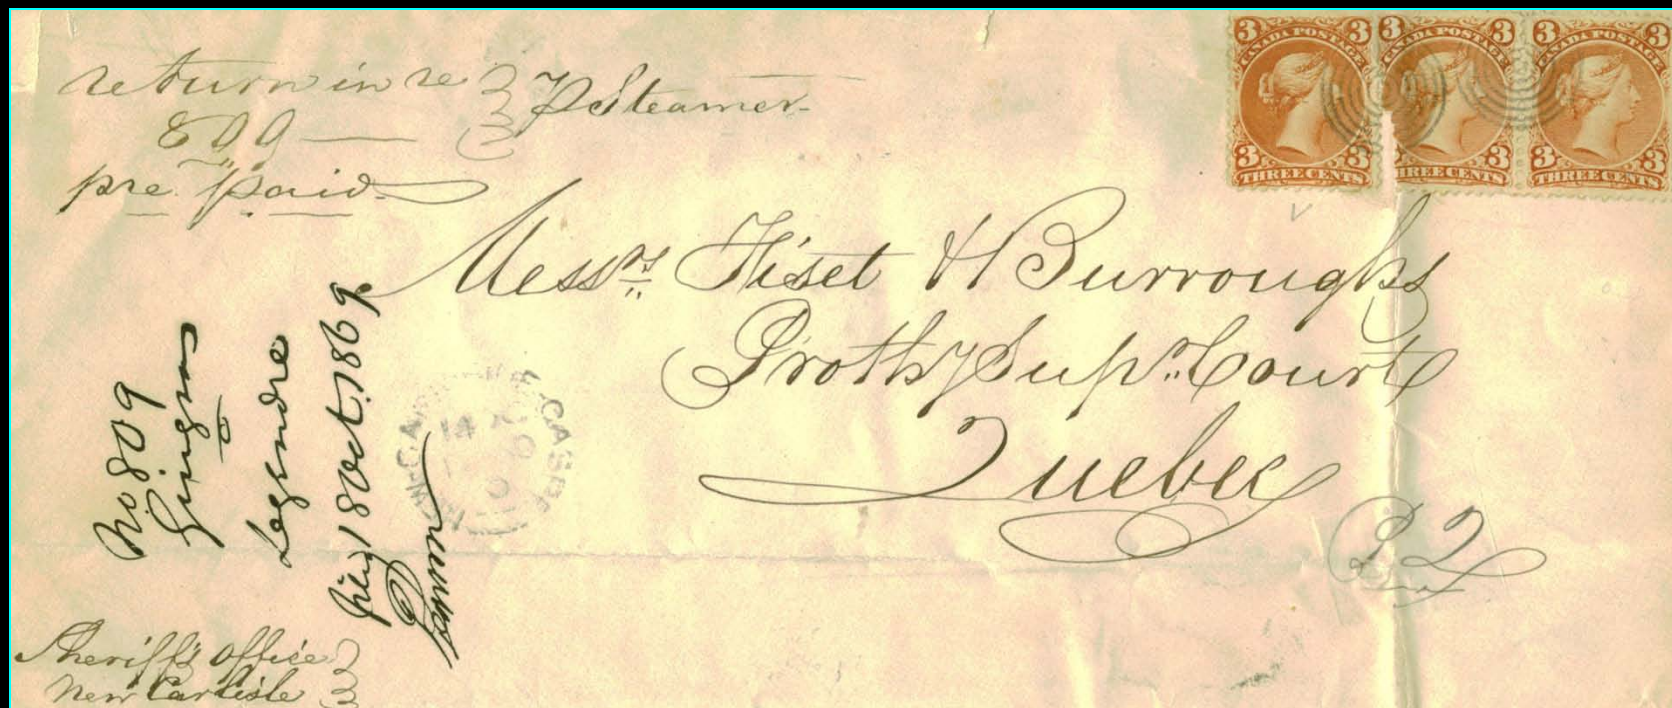 return in re
809
pre paid
P Steamer
3 CANADA POSTAGE 3
3 THREE CENTS 3
3 CANADA POSTAGE 3
3 THREE CENTS 3
3 CANADA POSTAGE 3
3 THREE CENTS 3
Messrs Fiset & Burroughs
Prothy Supr. Court
Quebec
P Q
No 809
Gingras
vs
Legendre
fily 18 Oct. 1869
14
Sheriff's office
New Carlisle